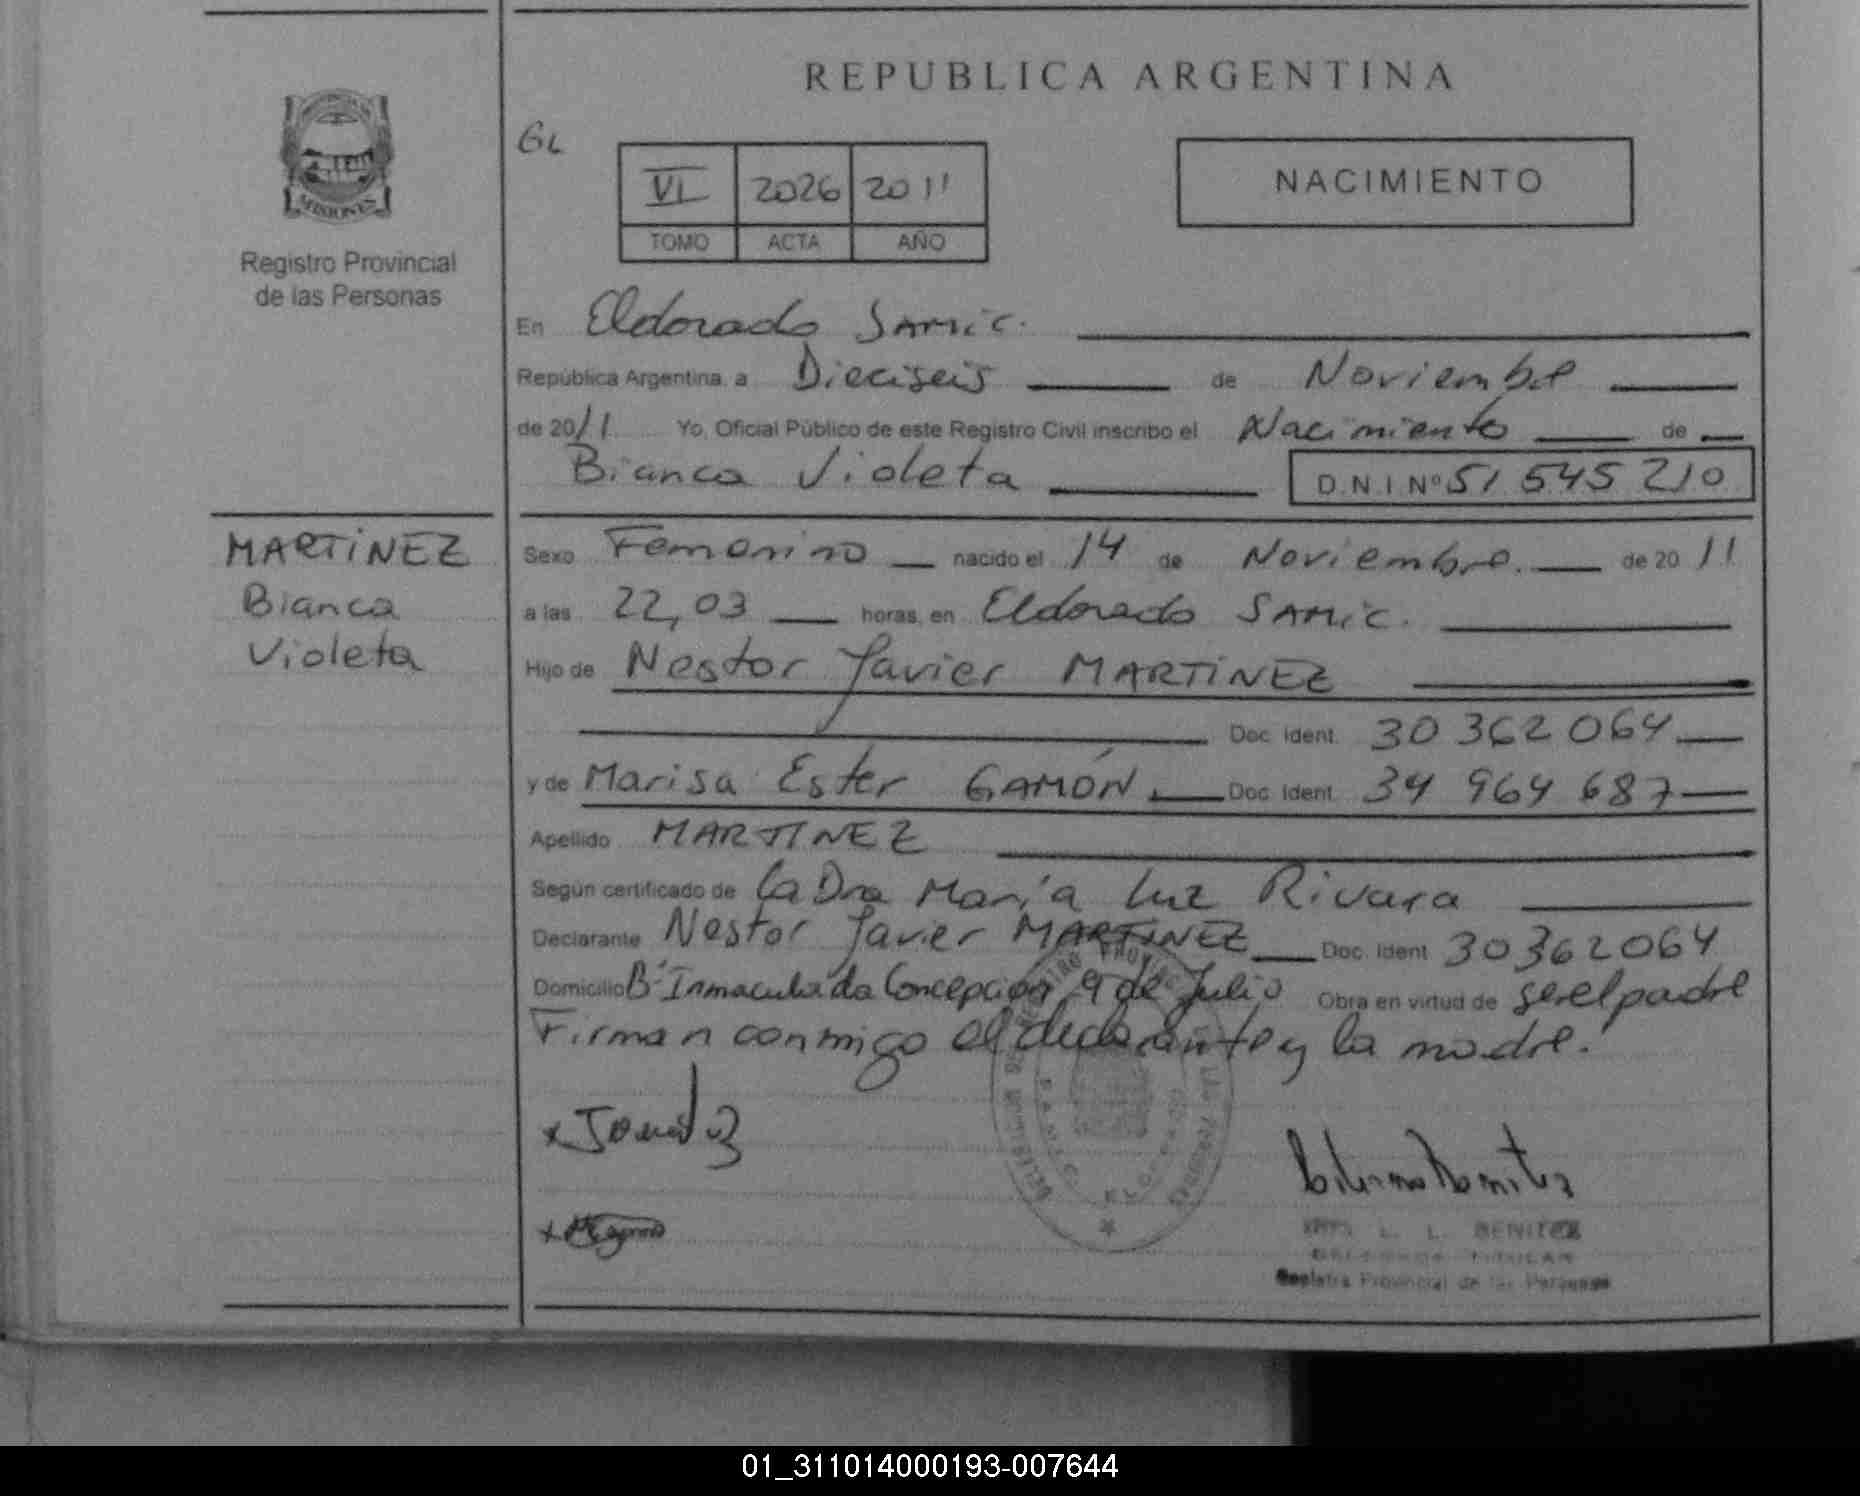 REPUBLICA ARGENTINA
GL
VI 2026 2011
TOMO ACTA AÑO
NACIMIENTO
MISIONES
Registro Provincial
de las Personas
En Eldorado SAMIC.
República Argentina, a Dieciseis de Noviembre
de 2011 Yo, Oficial Público de este Registro Civil inscribo el Nacimiento de
Bianca Violeta D.N.I Nº 51 545 210
MARTINEZ
Bianca
Violeta
Sexo Femenino nacido el 14 de Noviembre. de 2011
a las 22,03 horas, en Eldorado SAMIC.
Hijo de Nestor Javier MARTINEZ
Doc. Ident. 30 362 064
y de Marisa Ester GAMÓN. Doc. Ident. 34 964 687
Apellido MARTINEZ
Según certificado de la Dra María Luz Rivara
Declarante Nestor Javier MARTINEZ Doc. Ident 30362064
Domicilio Bº Inmaculada Concepcion 9 de Julio Obra en virtud de ser el padre
Firman conmigo el declarante y la madre.
L. L. BENITEZ
Registro Provincial de las Personas
01_311014000193-007644